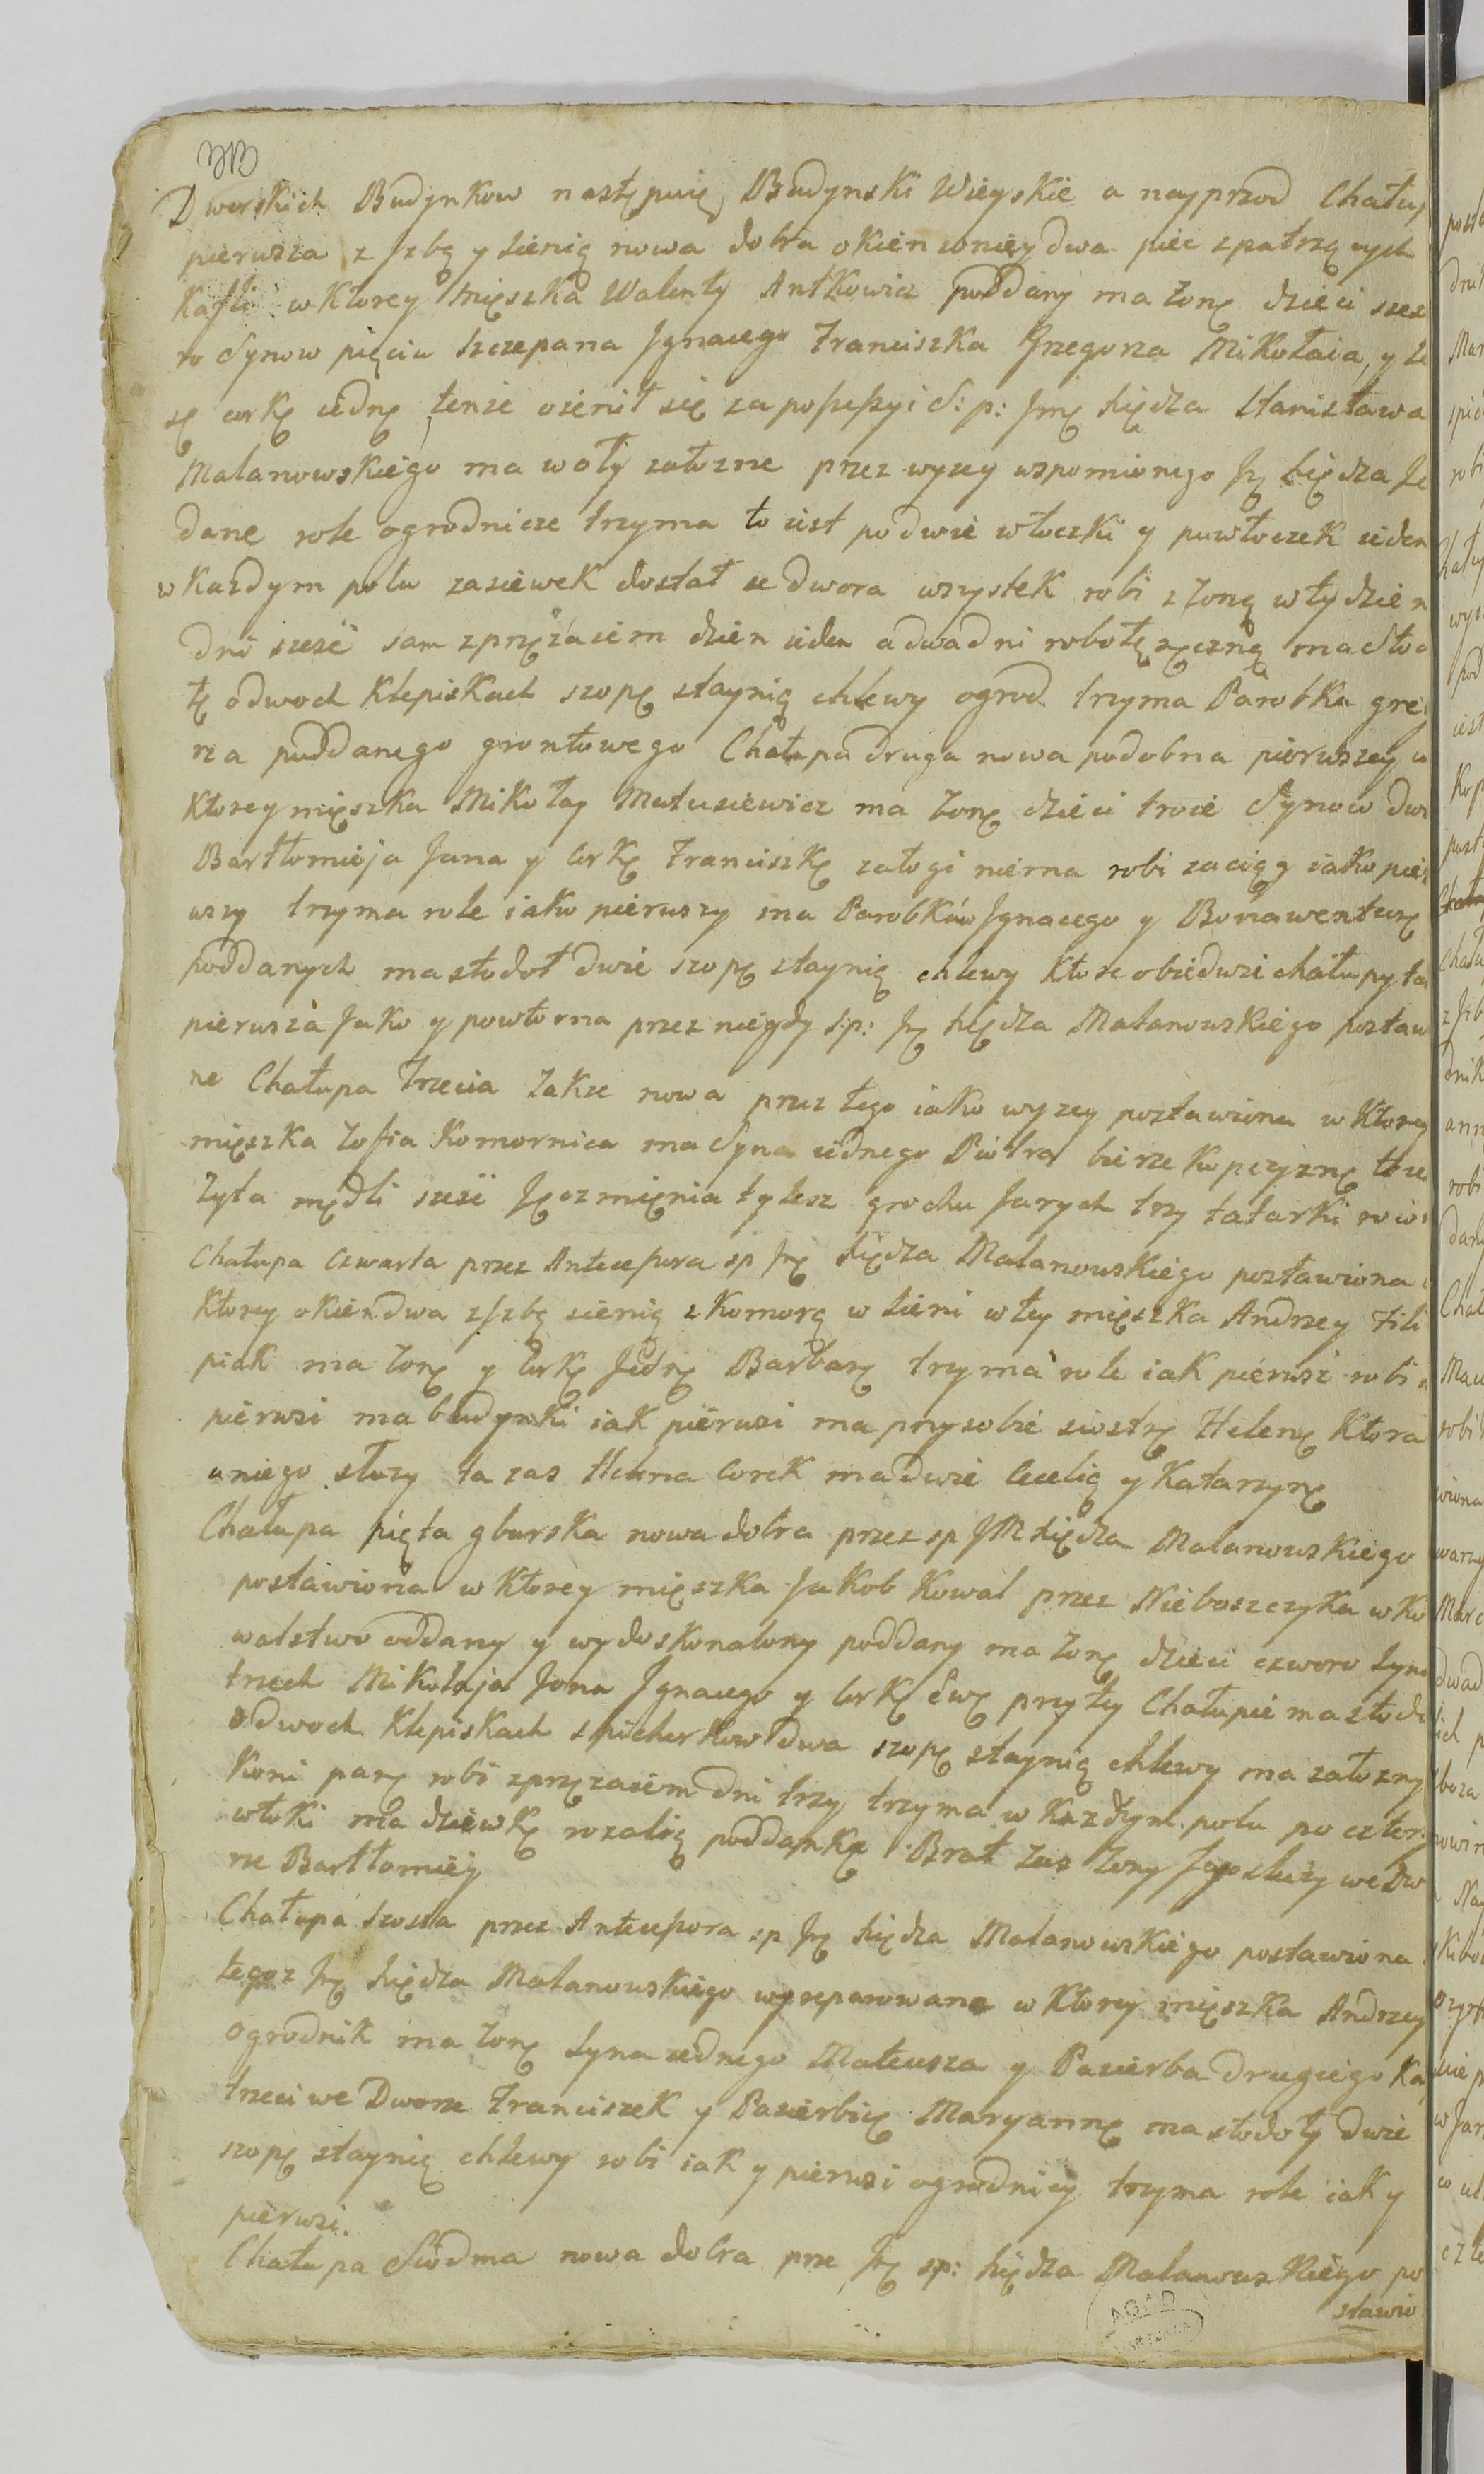 Dworskich Budynkow następuią Budynski Wieyskie a nayprzod Chałup
pierwsza z Jzbą y sienią nowa dobra okien w niey dwa piec z patrzących
Kafli w Ktorey mięszka Walenty Antkowicz poddany ma żonę dzieci szes
ro Synow pięciu Szczepana Jgnacego Franciszka Grzegorza Mikołaia, y
sę corkę iednę tenże ożenił się za possessyi S: p: Jmę Xiędza Stanisława
Malanowskiego ma woły załozne przez wyzey wspomnionego Ję Xiędza Je
dane role ogrodnicze trzyma to iest po dwie włoczki y puwłoczek ieden
w Kazdym polu zasiewek dostał ze dwora wszystek robi z żoną w tydzien
dni szesć sam zprzężaiem dzien ieden a dwa dni robotę ręczną ma Stodo
łę o dwoch Klepiskach szopę staynią chlewy ogrod trzyma Parobka grze
rza poddanego grontowego Chałupa druga nowa podobna pierwszey w
Ktorey mięszka Mikołay Matusiewicz ma żonę dzieci troie Synow dwu
Bartłomieja Jana y Corkę Franciszkę załogi niema robi zaciąg iako pier
wszy trzyma role iako pierwszy ma Parobków Jgnacego y Bonawenturę
poddanych ma stodoł dwie szopę staynią chlewy Ktore obiedwie chałupy ta
pierwsza Jako y powtorna przez niegdy S:p: Ję Xiędza Malanowskiego postaw
ne Chałupa Trzecia Takze nowa przez tego iako wyzey postawiona w Ktorey
mięszka Zofia Komornica ma Syna iednego Piotra bierze Kopczyznę to ie
Zyta mędli szesć Jęczmięnia tylesz grochu Jarych trzy tatarki
Chałupa Czwarta przez Antecessora sp Jmę Xiędza Malanowskiego postawiona
Ktorey okien dwa z Jzbą sienią z Komorą w sieni w tey mięszka Andrzey Fili
piak ma żonę y Corkę Jednę Barbarę trzyma role iak pierwsi robi
pierwsi ma budynki iak pierwsi ma przy sobie siostrę Helenę Ktora
u niego słuzy ta zas Helena Corek ma dwie Cecelią y Katarzynę
Chałupa piąta gburska nowa dobra przez sp JM Xiędza Malanowskiego
postawiona w Ktorey mięszka Jakob Kowal przez Nieboszczyka w Ko
walstwo oddany y wydoskonalony poddany ma żonę dzieci czworo Syno
trzech Mikołaja Jana Jgnacego y Corkę Ewę przy tey Chałupie ma stodo
o dwoch Klepiskach spicherkow dwa szopę staynią chlewy ma załozny
Koni parę robi zprzęzaiem dni trzy trzyma w Kazdym polu po cztery
włoki ma dziewkę rozalią poddankę Brat zas żony Jego słuzy we Dwo
rze Bartłomiey
Chałupa szosta przez Antecessora sp Ję Xiędza Malanowskiego postawiona
tegoz Ję Xiędza Malanowskiego wyreparowana w Ktorey mięszka Andrzey
ogrodnik ma żonę Syna iednego Mateusza y Pasierba drugiego Ka
trzeci we Dworze Franciszek y Pasierbicę Maryannę ma stodoły dwie
szopę staynią chlewy robi iak y pierwsi ogrodnicy trzyma role iak y
pierwsi.
Chałupa Siodma nowa dobra prze Ję sp: Xiędza Malanowskiego po
stawio
AGAD